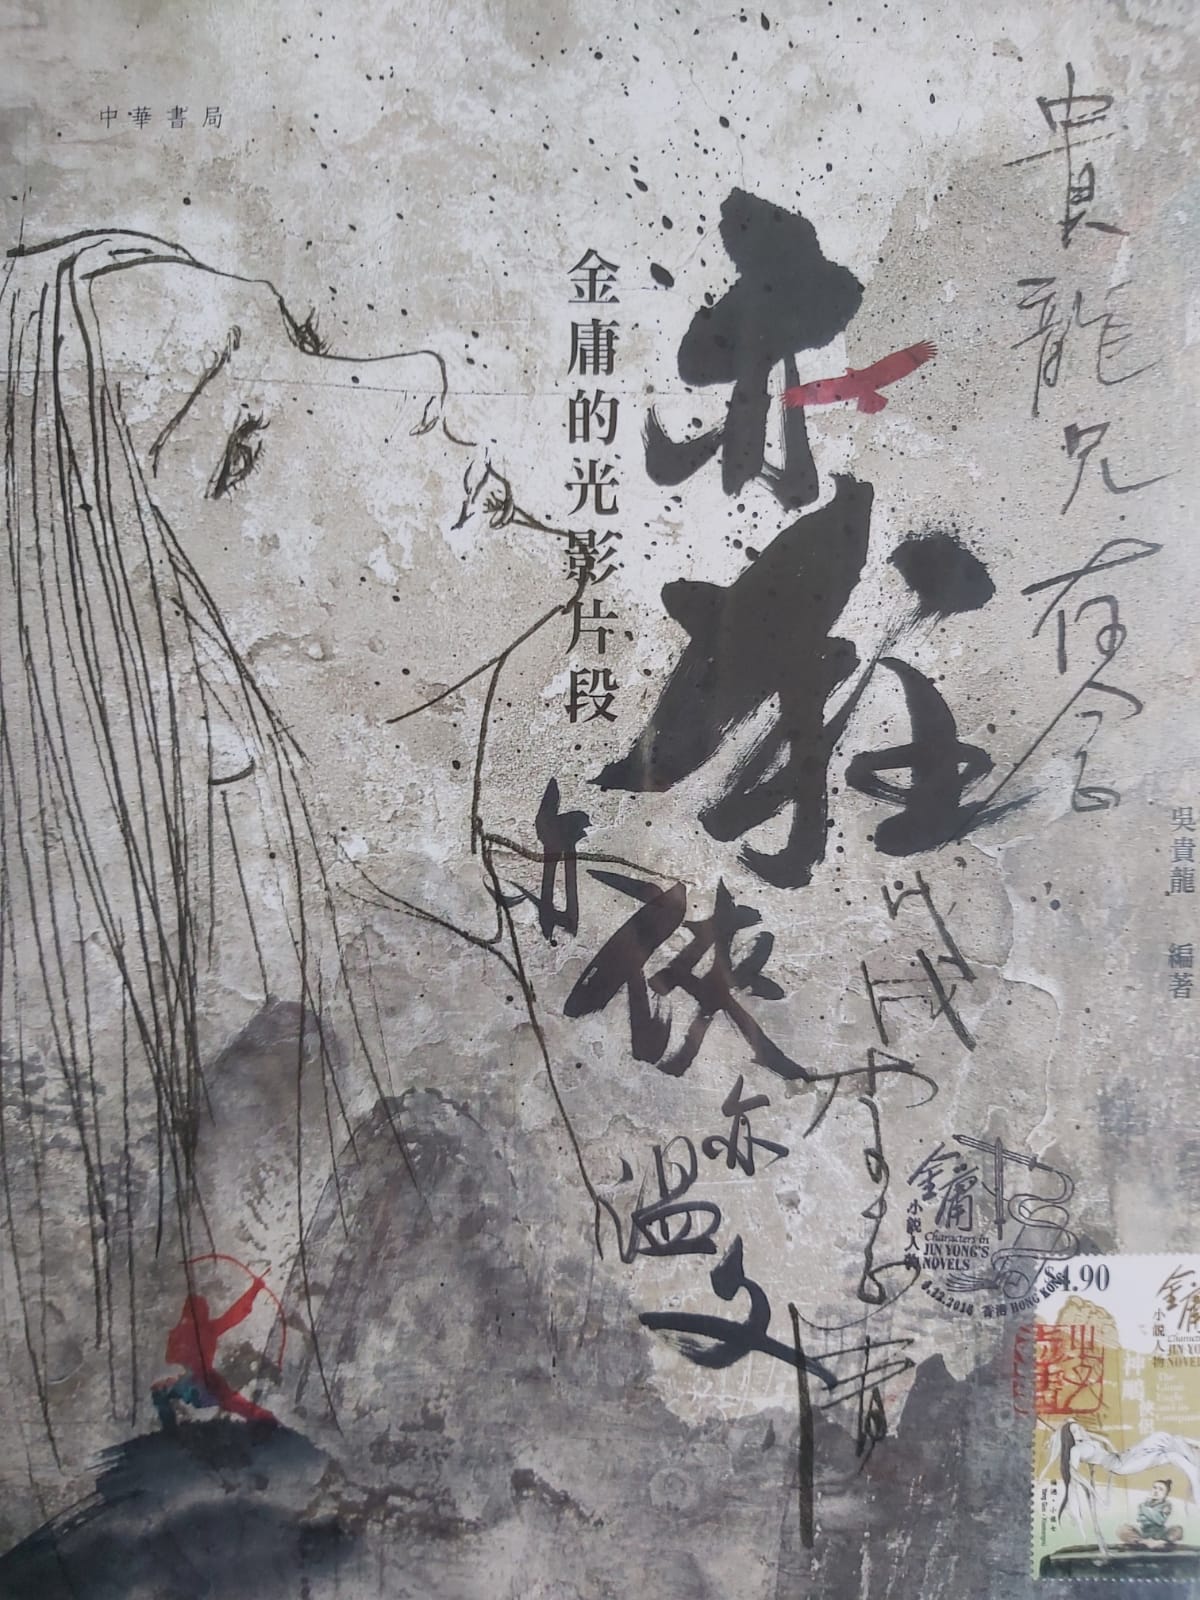 中華書局
貴龍兄存念
金庸的光影片段
亦狂
亦俠
亦溫文
吳貴龍 編著
戊戌李志清
金庸
小說人物
Characters in
JIN YONG'S
NOVELS
6.12.2018 香港 HONG KONG
$4.90
金庸
小說人物